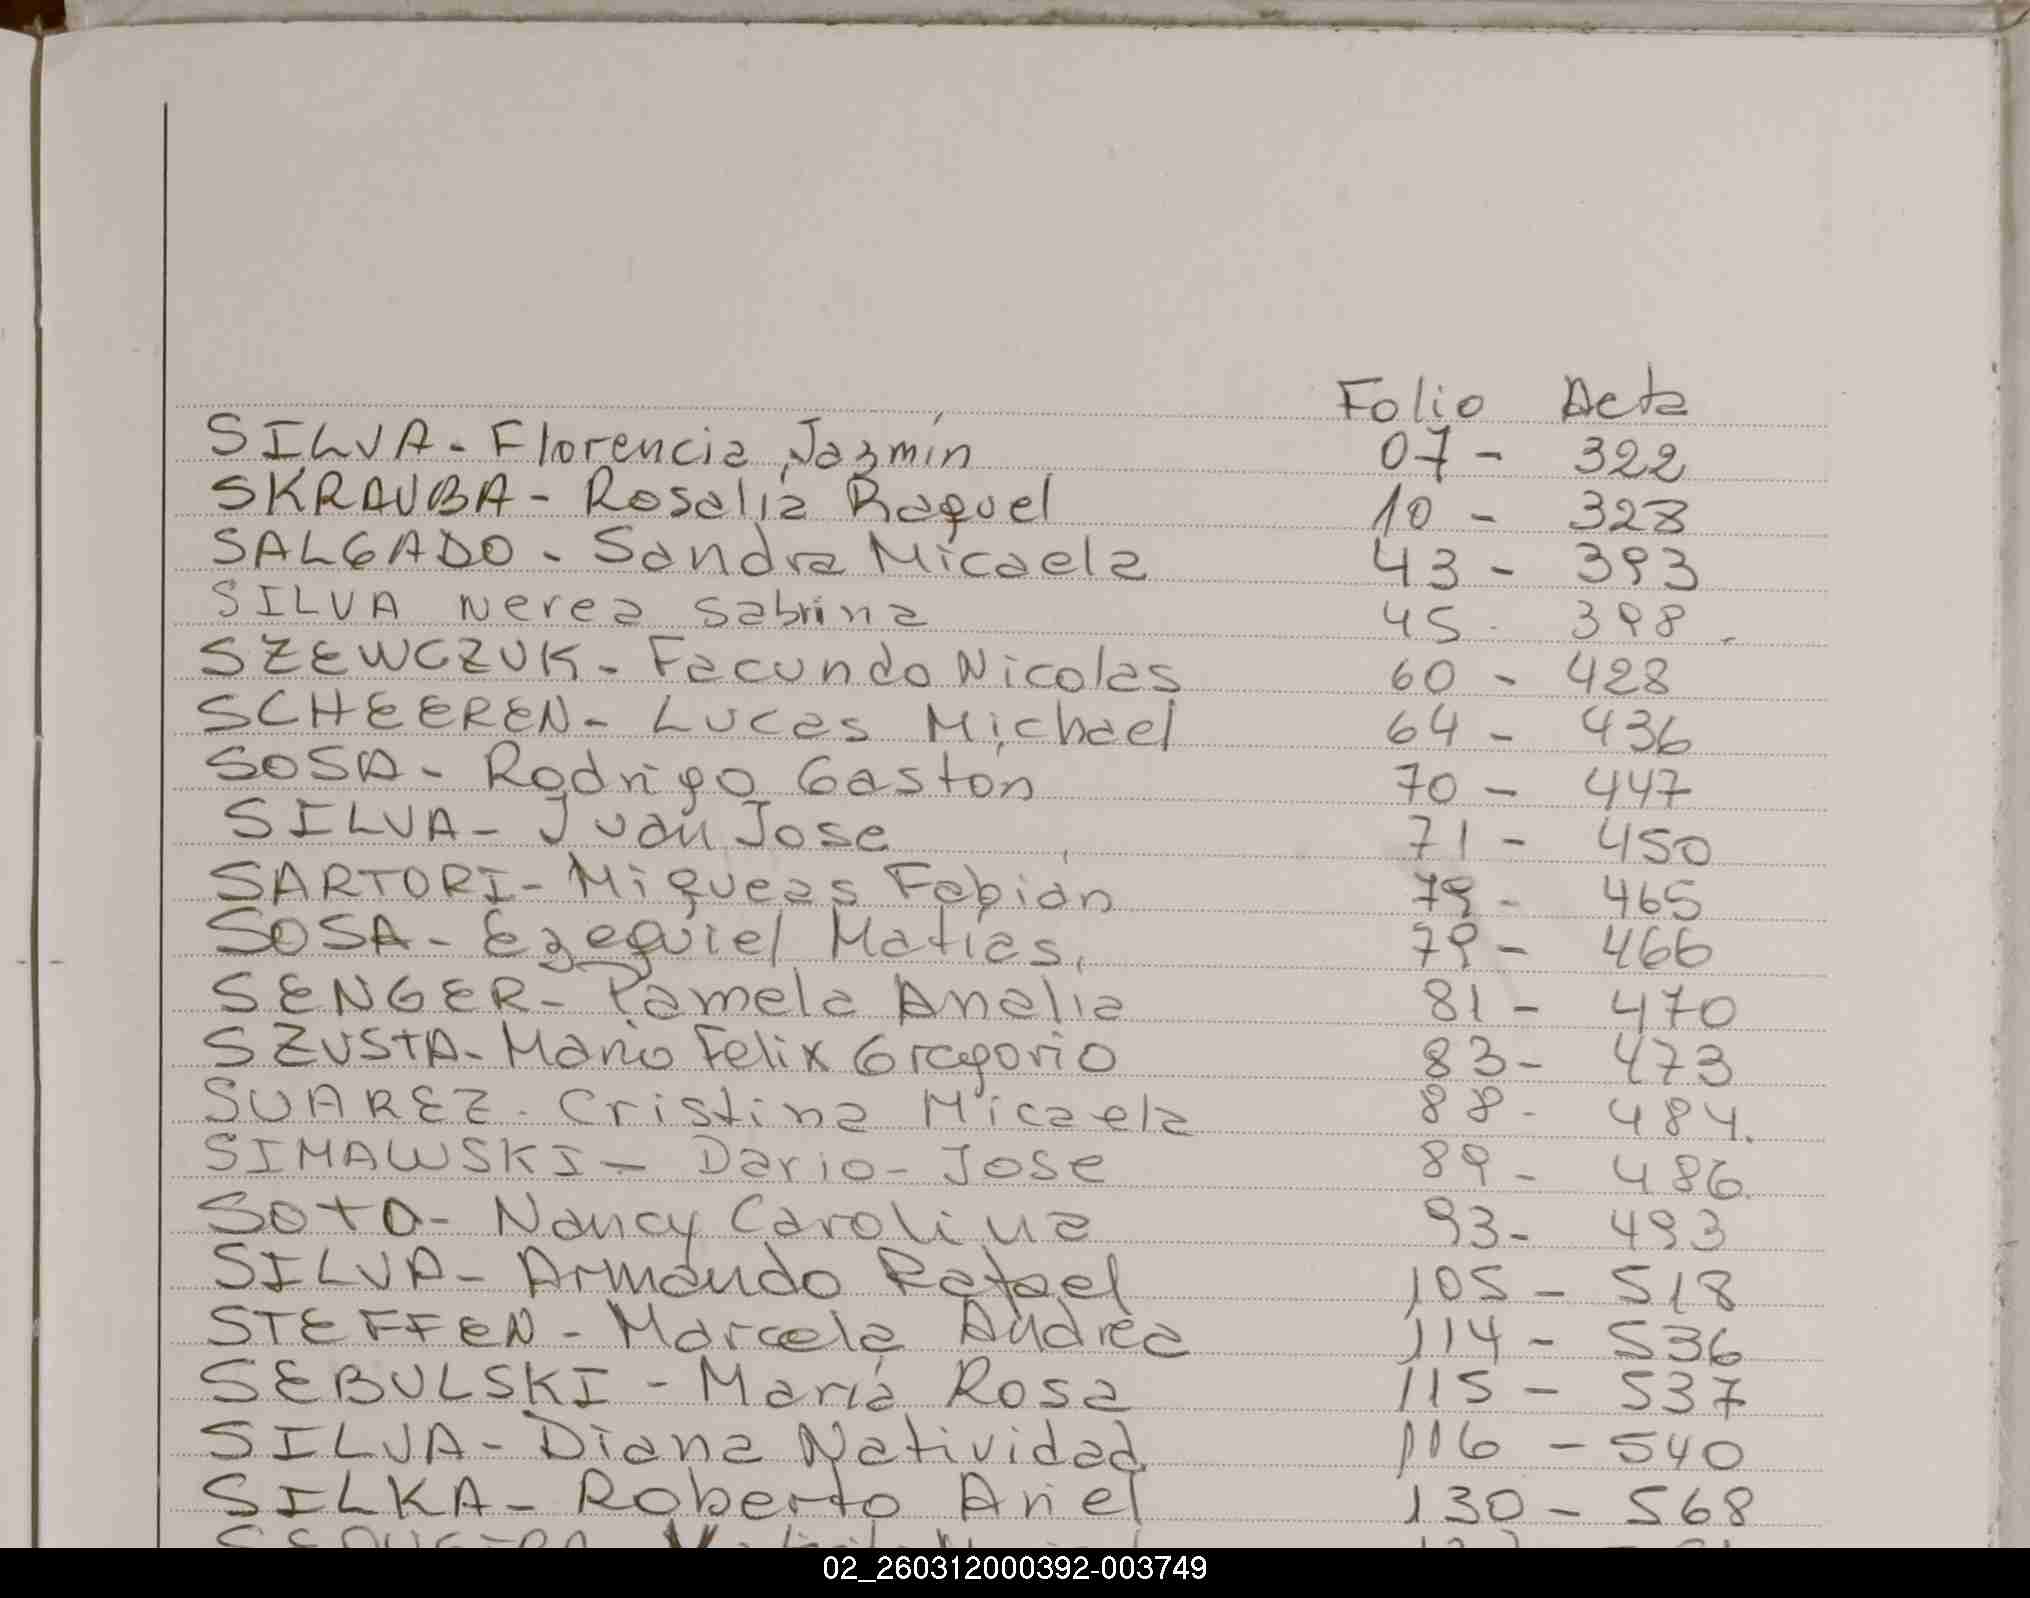 Folio Acta
SILVA - Florencia Jazmín 07 - 322
SKRAUBA - Rosalía Raquel 10 - 328
SALGADO - Sandra Micaela 43 - 393
SILVA Nerea Sabrina 45 - 398 -
SZEWCZUK - Facundo Nicolas 60 - 428
SCHEEREN - Lucas Michael 64 - 436
SOSA - Rodrigo Gastón 70 - 447
SILVA - Juan Jose 71 - 450
SARTORI - Miqueas Fabián 79 - 465
SOSA - Ezequiel Matías, 79 - 466
SENGER - Pamela Analia 81 - 470
SZUSTA - Mario Felix Gregorio 83 - 473
SUAREZ - Cristina Micaela 88 - 484.
SIMAWSKI - Dario - Jose 89 - 486.
SOTO - Nancy Carolina 93 - 493
SILVA - Armando Rafael 105 - 518
STEFFEN - Marcela Andrea 114 - 536
SEBULSKI - María Rosa 115 - 537
SILVA - Diana Natividad 116 - 540
SILKA - Roberto Ariel 130 - 568
02_260312000392-003749